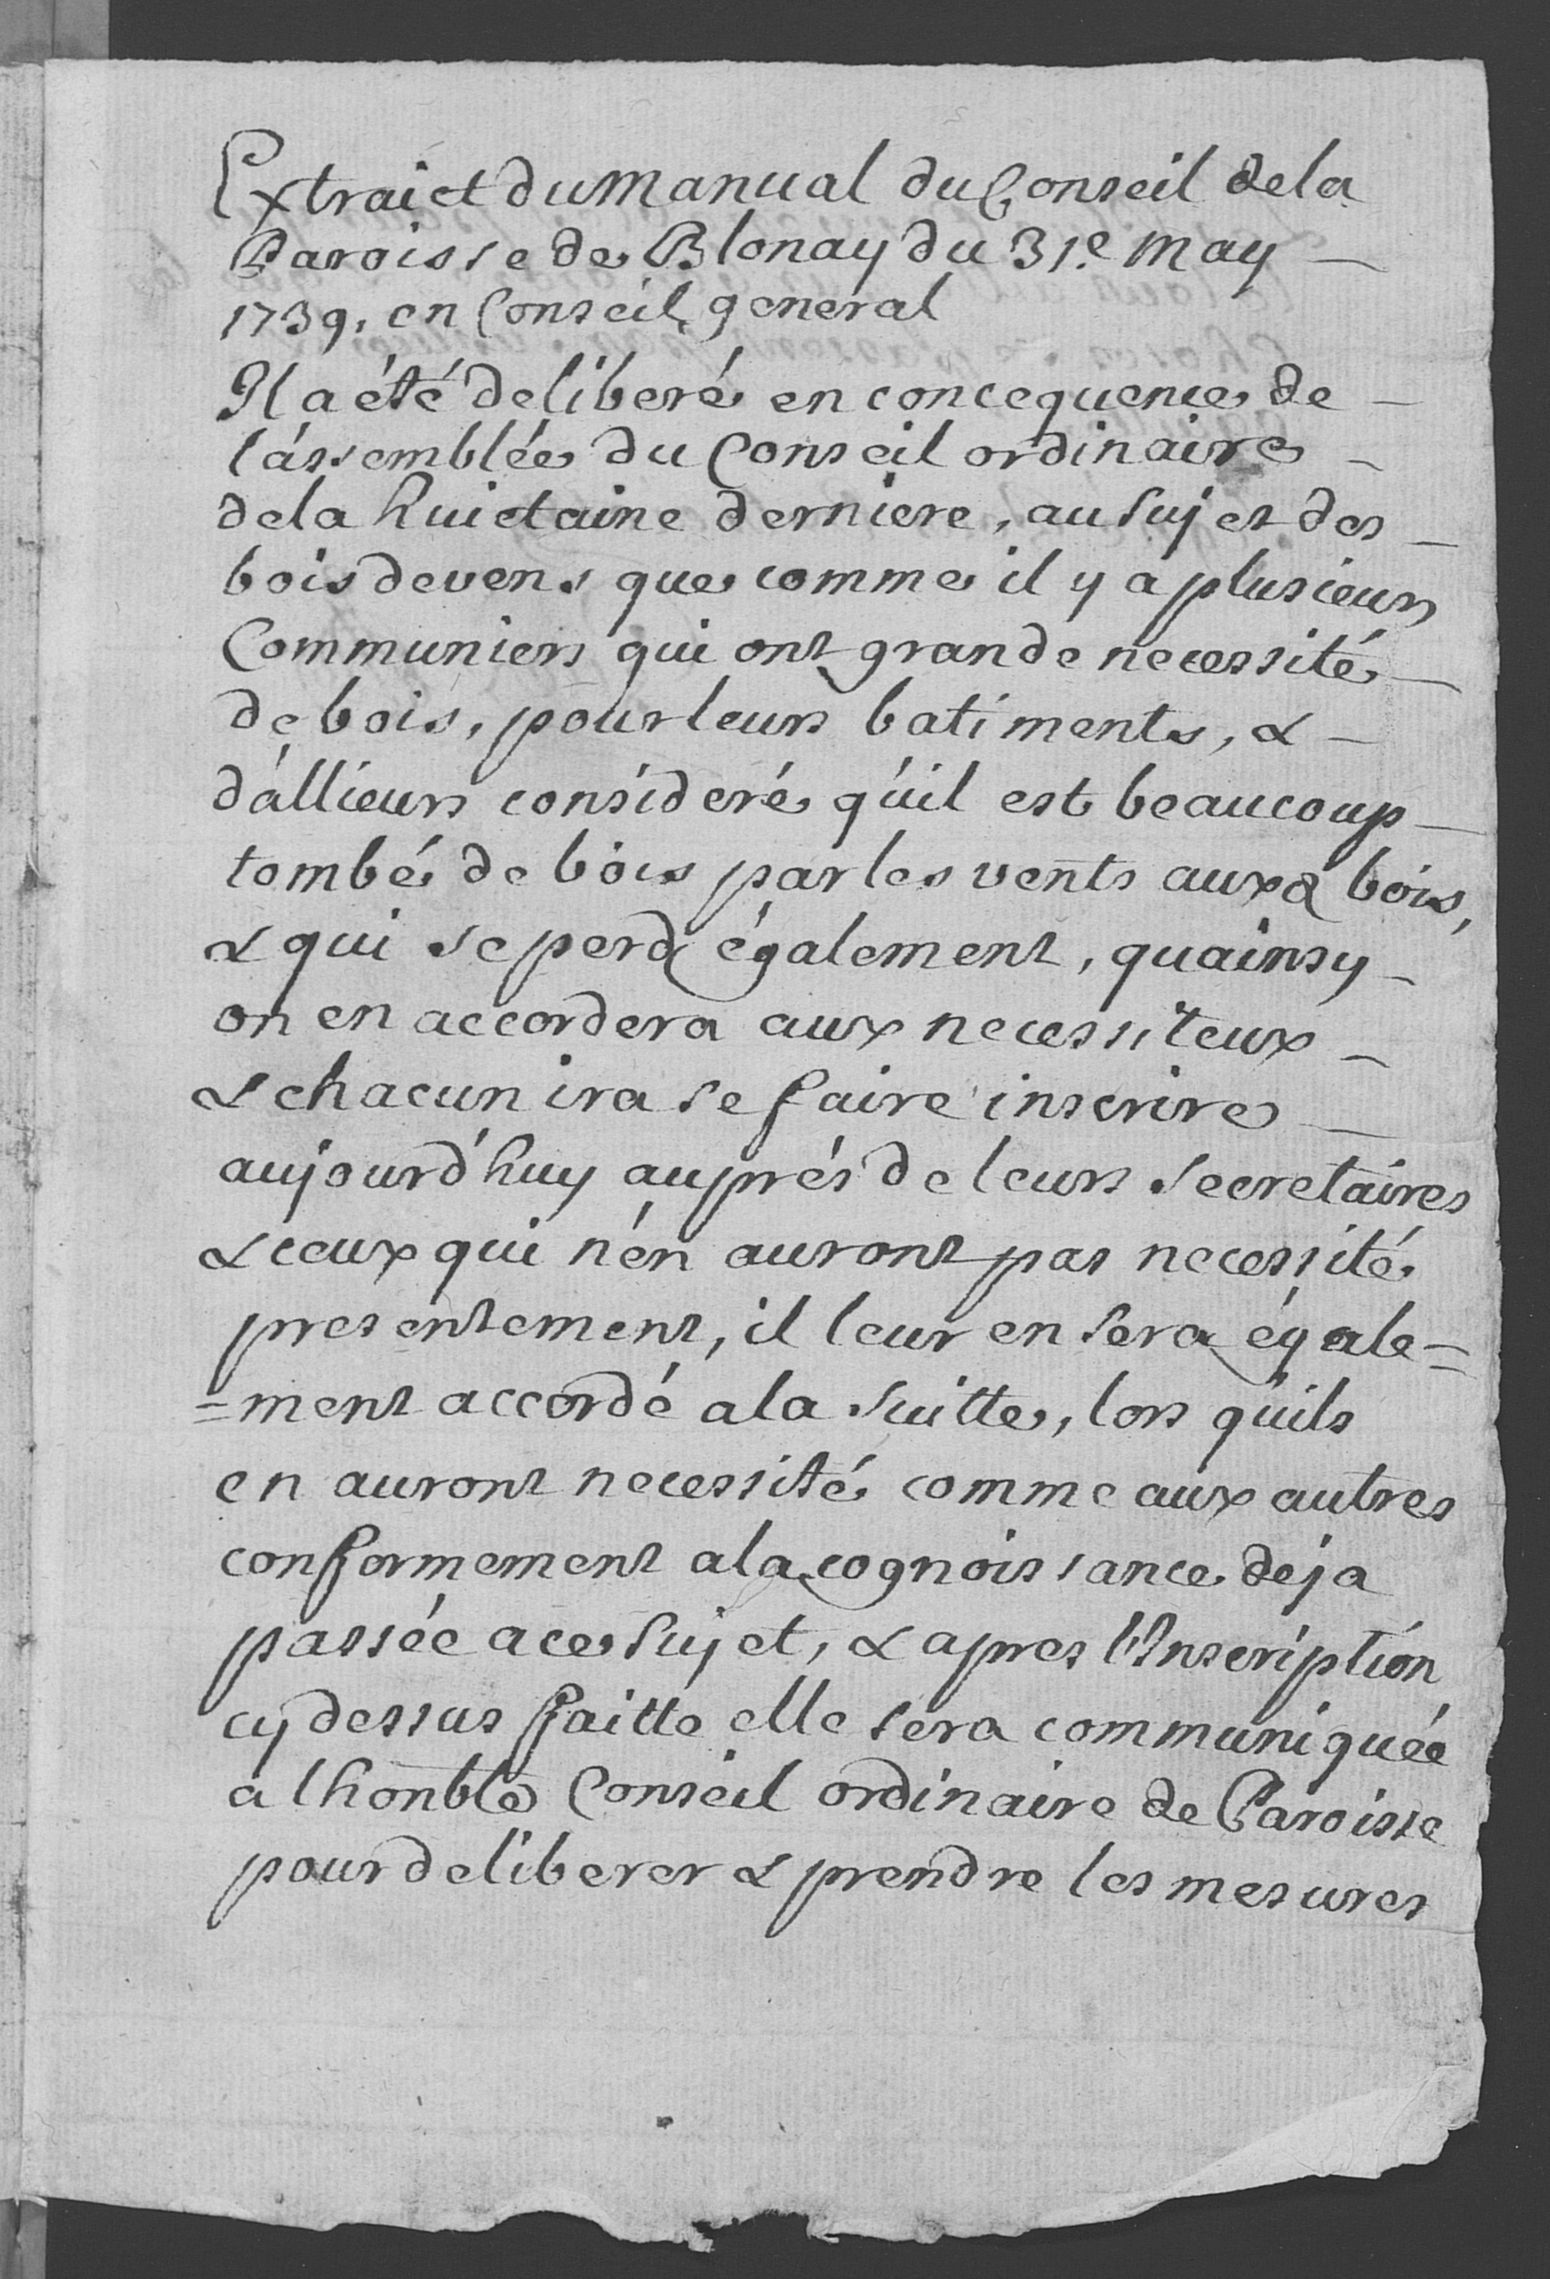 Extraict du Manual du Conseil de la
Paroisse de Blonay du 31.e May —
1739, en Conseil general
Il a été deliberé en concequence de —
l'assemblée du Conseil ordinaire —
de la huictaine derniere, au sujet des —
bois devens que comme il y a plusieurs
Communiers qui ont grande necessité —
de bois, pour leurs batiments, & —
d'allieurs consideré qu'il est beaucoup —
tombé de bois par les vents auxd bois,
& qui se perd également, qu'ainsy —
on en accordera aux necessiteux —
& chacun ira se faire inscrire —
aujourd'huy auprés de leurs secretaires
& ceux qui n'en auront pas necessité
presentement, il leur en sera égale=
=ment accordé a la suitte, lors qu'ils
en auront necessité comme aux autres
conformement a la cognoissance deja
passée a ce sujet, & apres l'Inscription
cy dessus faitte elle sera communiquée
a lhonble Conseil ordinaire de Paroisse
pour deliberer & prendre les mesures